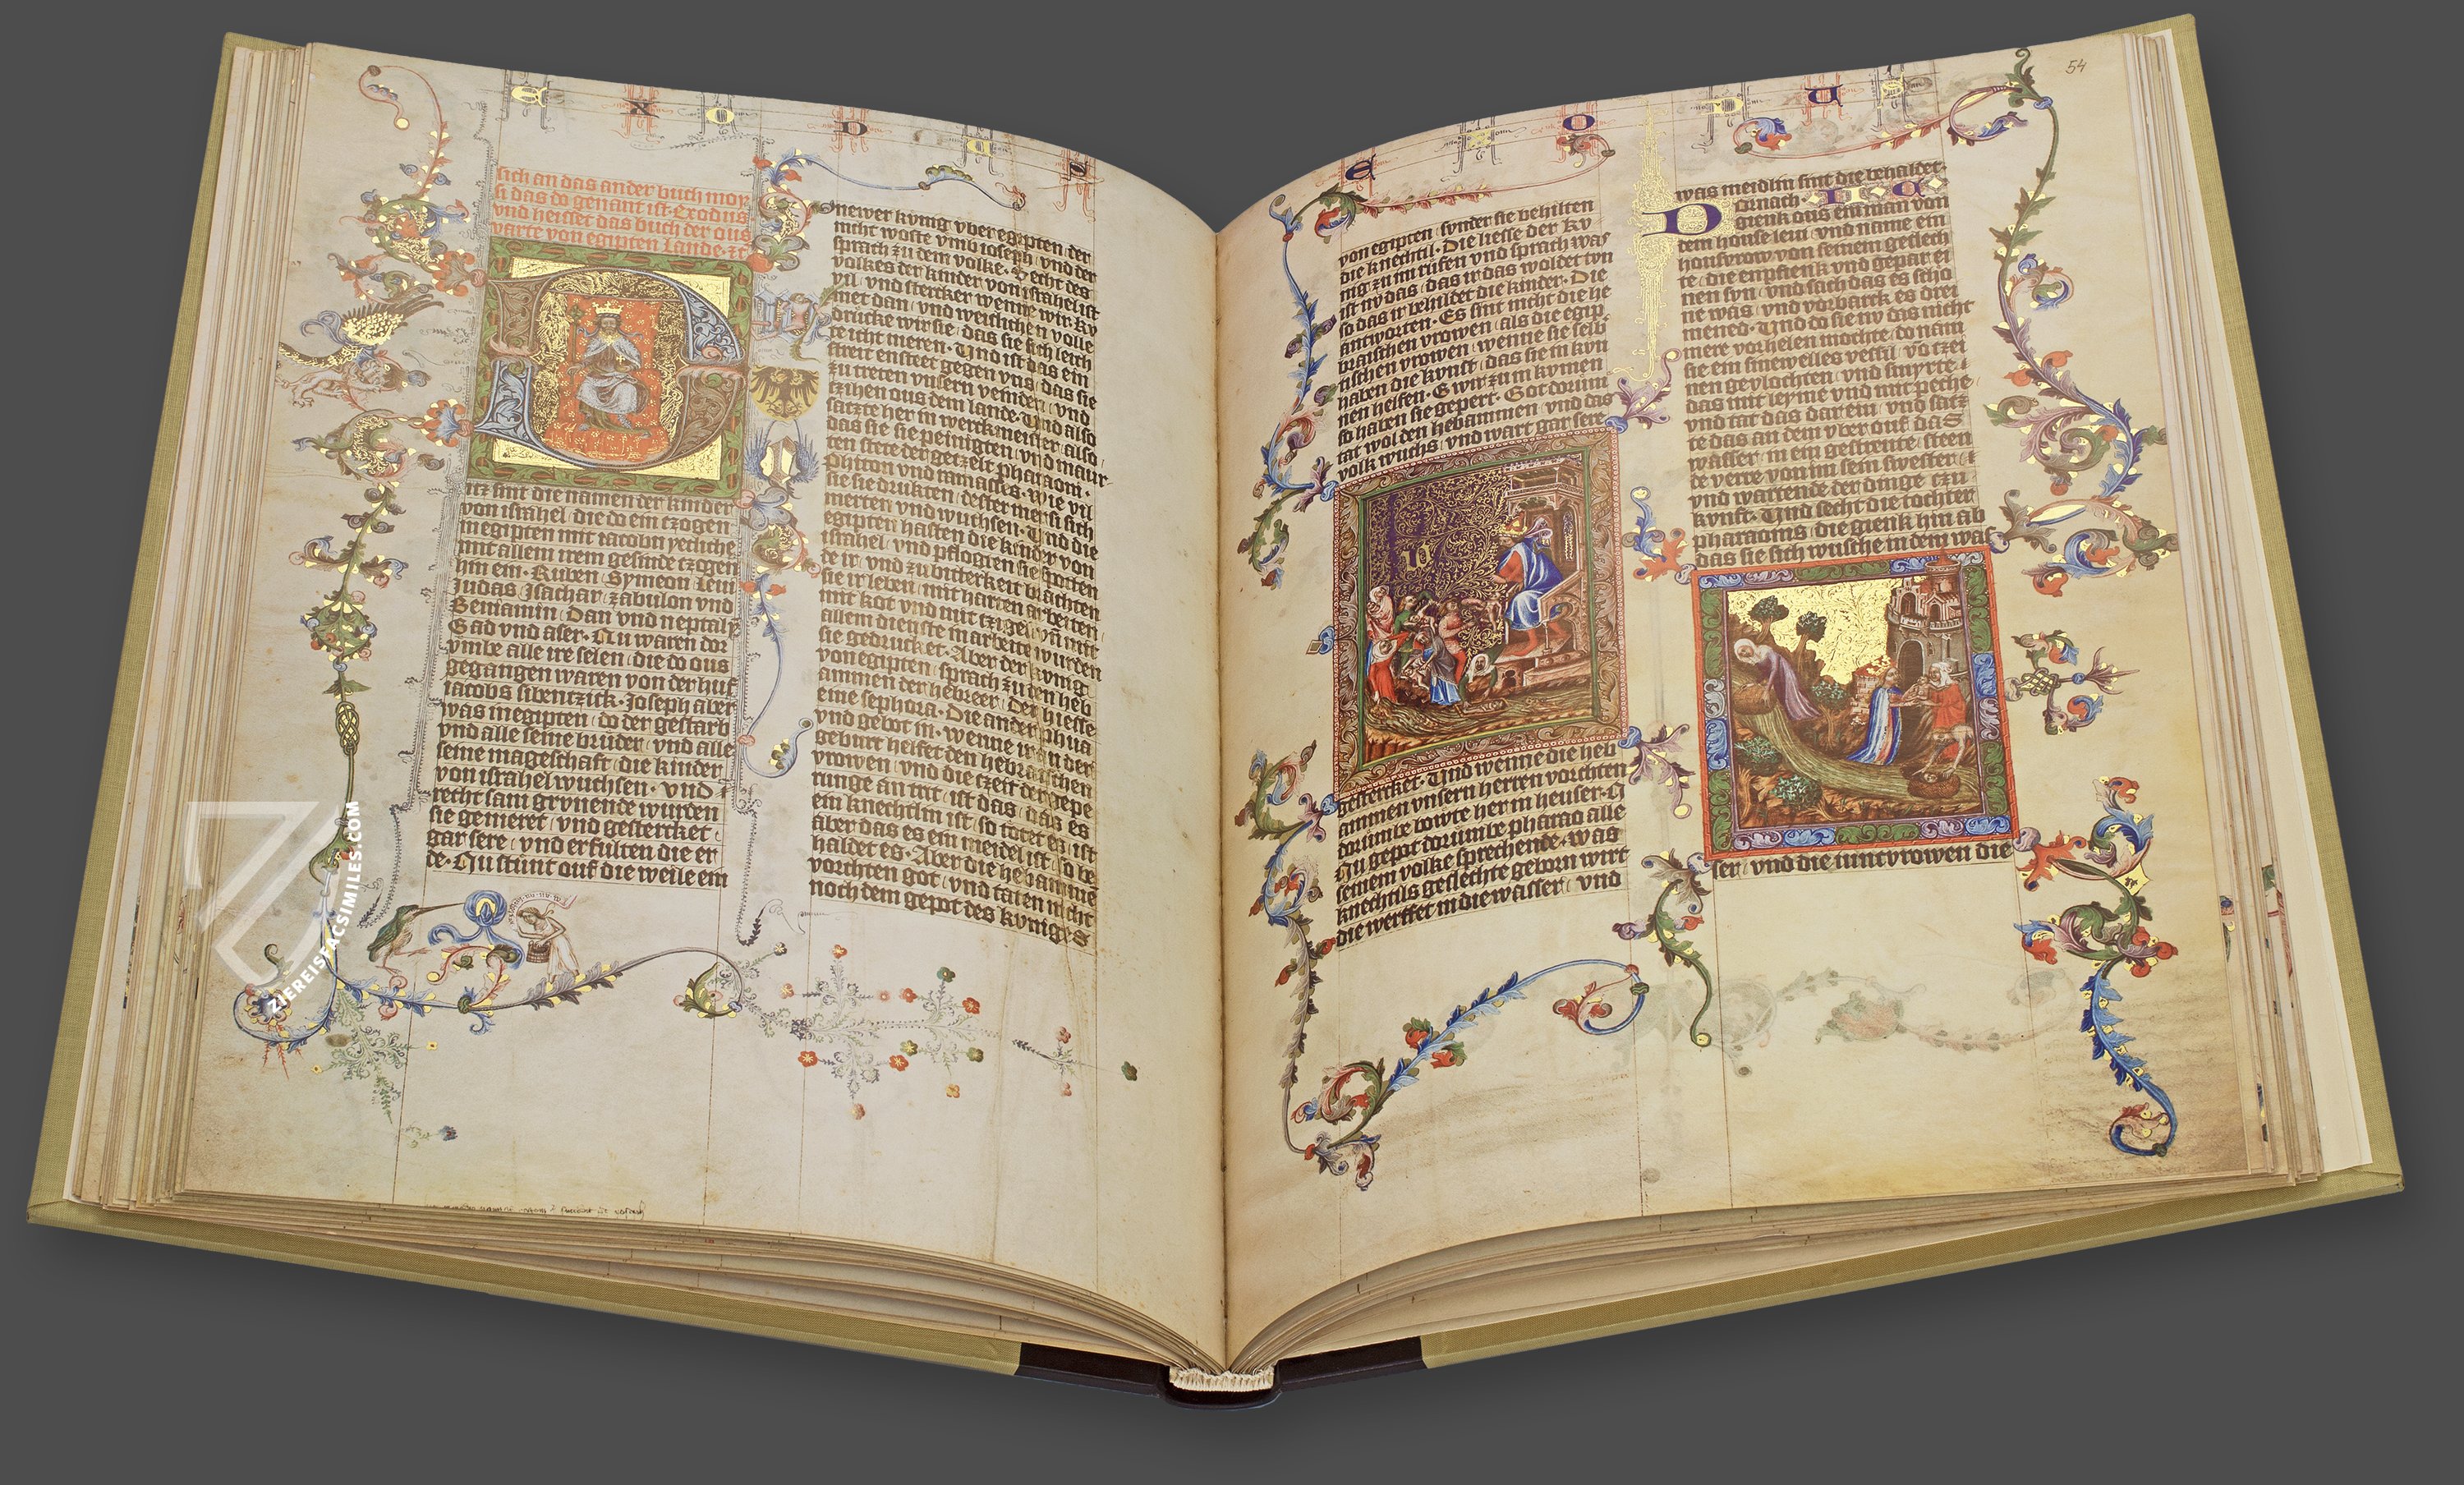 E X O D U S
sich an das ander buch moy
si das do genant ist Exodus
vnd heisset das buch der ous
varte von egipten Lande·ꝛc
itz sint die namen der kinder
von israhel die do ein tzogen
in egipten mit iacobn yecliche
mit allem irem gesinde tzogen
hin ein· Ruben Symeon Leui
Judas Isachar zabulon vnd
Beniamin Dan vnd neptalȳ
Gad vnd aser· Nu waren dor
vmbe alle ire selen die do ous
gegangen waren von der huf
iacobs sibentzick· Joseph aber
was in egipten do der gestarb
vnd alle seine brüder vnd alle
seine mageschaft die kinder
von israhel wuchsen· vnd
recht sam grvnende wurden
sie gemeret vnd gestercket
gar sere vnd erfulten die er
de· Nu stunt ouf die weile ein
newer kvnig vber egipten der
nicht woste vmb ioseph vnd der
sprach zu dem volke· Secht des
volkes der kinder von israhel ist
vil vnd stercker wenne wir· kv
met dan vnd weislichen volle
drucke wir sie das sie sich leich
te icht meren· Vnd ist das ein
streit ensteet gegen vns das sie
zu treten vnsern veinden vnd
tzihen ous dem lande· Vnd also
satzte her in werckmeister also
das sie sie peinigten vnd maur
ten stete der getzelt pharaoni·
phiton vnd ramasses· wie vil
sie sie drukten dester mer si sich
merten vnd wuchsen· Vnd die
egipten hasten die kinder von
israhel vnd pflogten sie spotten
de ir vnd zu bitterkeit brachten
sie ir leben mit harten arbeiten
mit kot vnd mit tzigeln vn mit
allem dienste in arbeite wurden
sie gedrucket· Aber der kvnig
von egipten sprach zu den heb
ammen der hebreer Der hiesse
eine sephora· Die ander phua
vnd gebot in· wenne ir in der
geburt helfet den hebraischen
vrowen vnd die tzeit der gepe
runge an trit ist das das es
ein knechtlin ist so totet es ist
aber das es ein meidel ist so be
haldet es· Aber die hebamme
vorchten got vnd taten nicht
noch dem gepot des kvniges
E X O D U S
54
von egipten sunder sie behilten
die knechtil· Die liesse der kv
nig zu im rüfen vnd sprach was
ist nv das das ir das woldet tvn
so das ir behildet die kinder· Die
antworten· Es sint nicht die he
braischen vrowen als die egip
tischen vrowen wenne sie selb
haben die kvnst das sie in kvn
nen helfen· E wir zu in kvmen
so haben sie gepert· Got dorum
tat wol den hebammen vnd das
volk wuchs vnd wart gar sere
gestercket· Vnd wenne die heb
ammen vnsern herren vorchten
dorumbe bowte her in heuser· N
Nu gepot dorumbe pharao alle
seinem volke sprechende· was
knechtils geslechte geborn wirt
die werffet in die wasser vnd
was meidlin sint die behaldet·
Dornach
gienk ous ein man von
dem house leui vnd name ein
housvrow von seinem geslech
te die enpfienk vnd gepar ei
nen svn vnd sach das es scho
ne was vnd vorbarck es drei
mened· Vnd do sie nv das nicht
mere vorhelen mochte do nam
sie ein sinewelles vessil vo tzei
nen gevlochten vnd smyrte
das mit leyme vnd mit peche
vnd tat das dar ein vnd satz
te das an dem vber ouf das
wasser in ein gestreute steen
de verre von im sein swester
vnd wartende der dinge tzu
kvnft· Vnd secht die tochter
pharaonis die gienk hin ab
das sie sich wusche in dem was
ser vnd die iuncvrowen die
ZIEREISFACSIMILES.COM